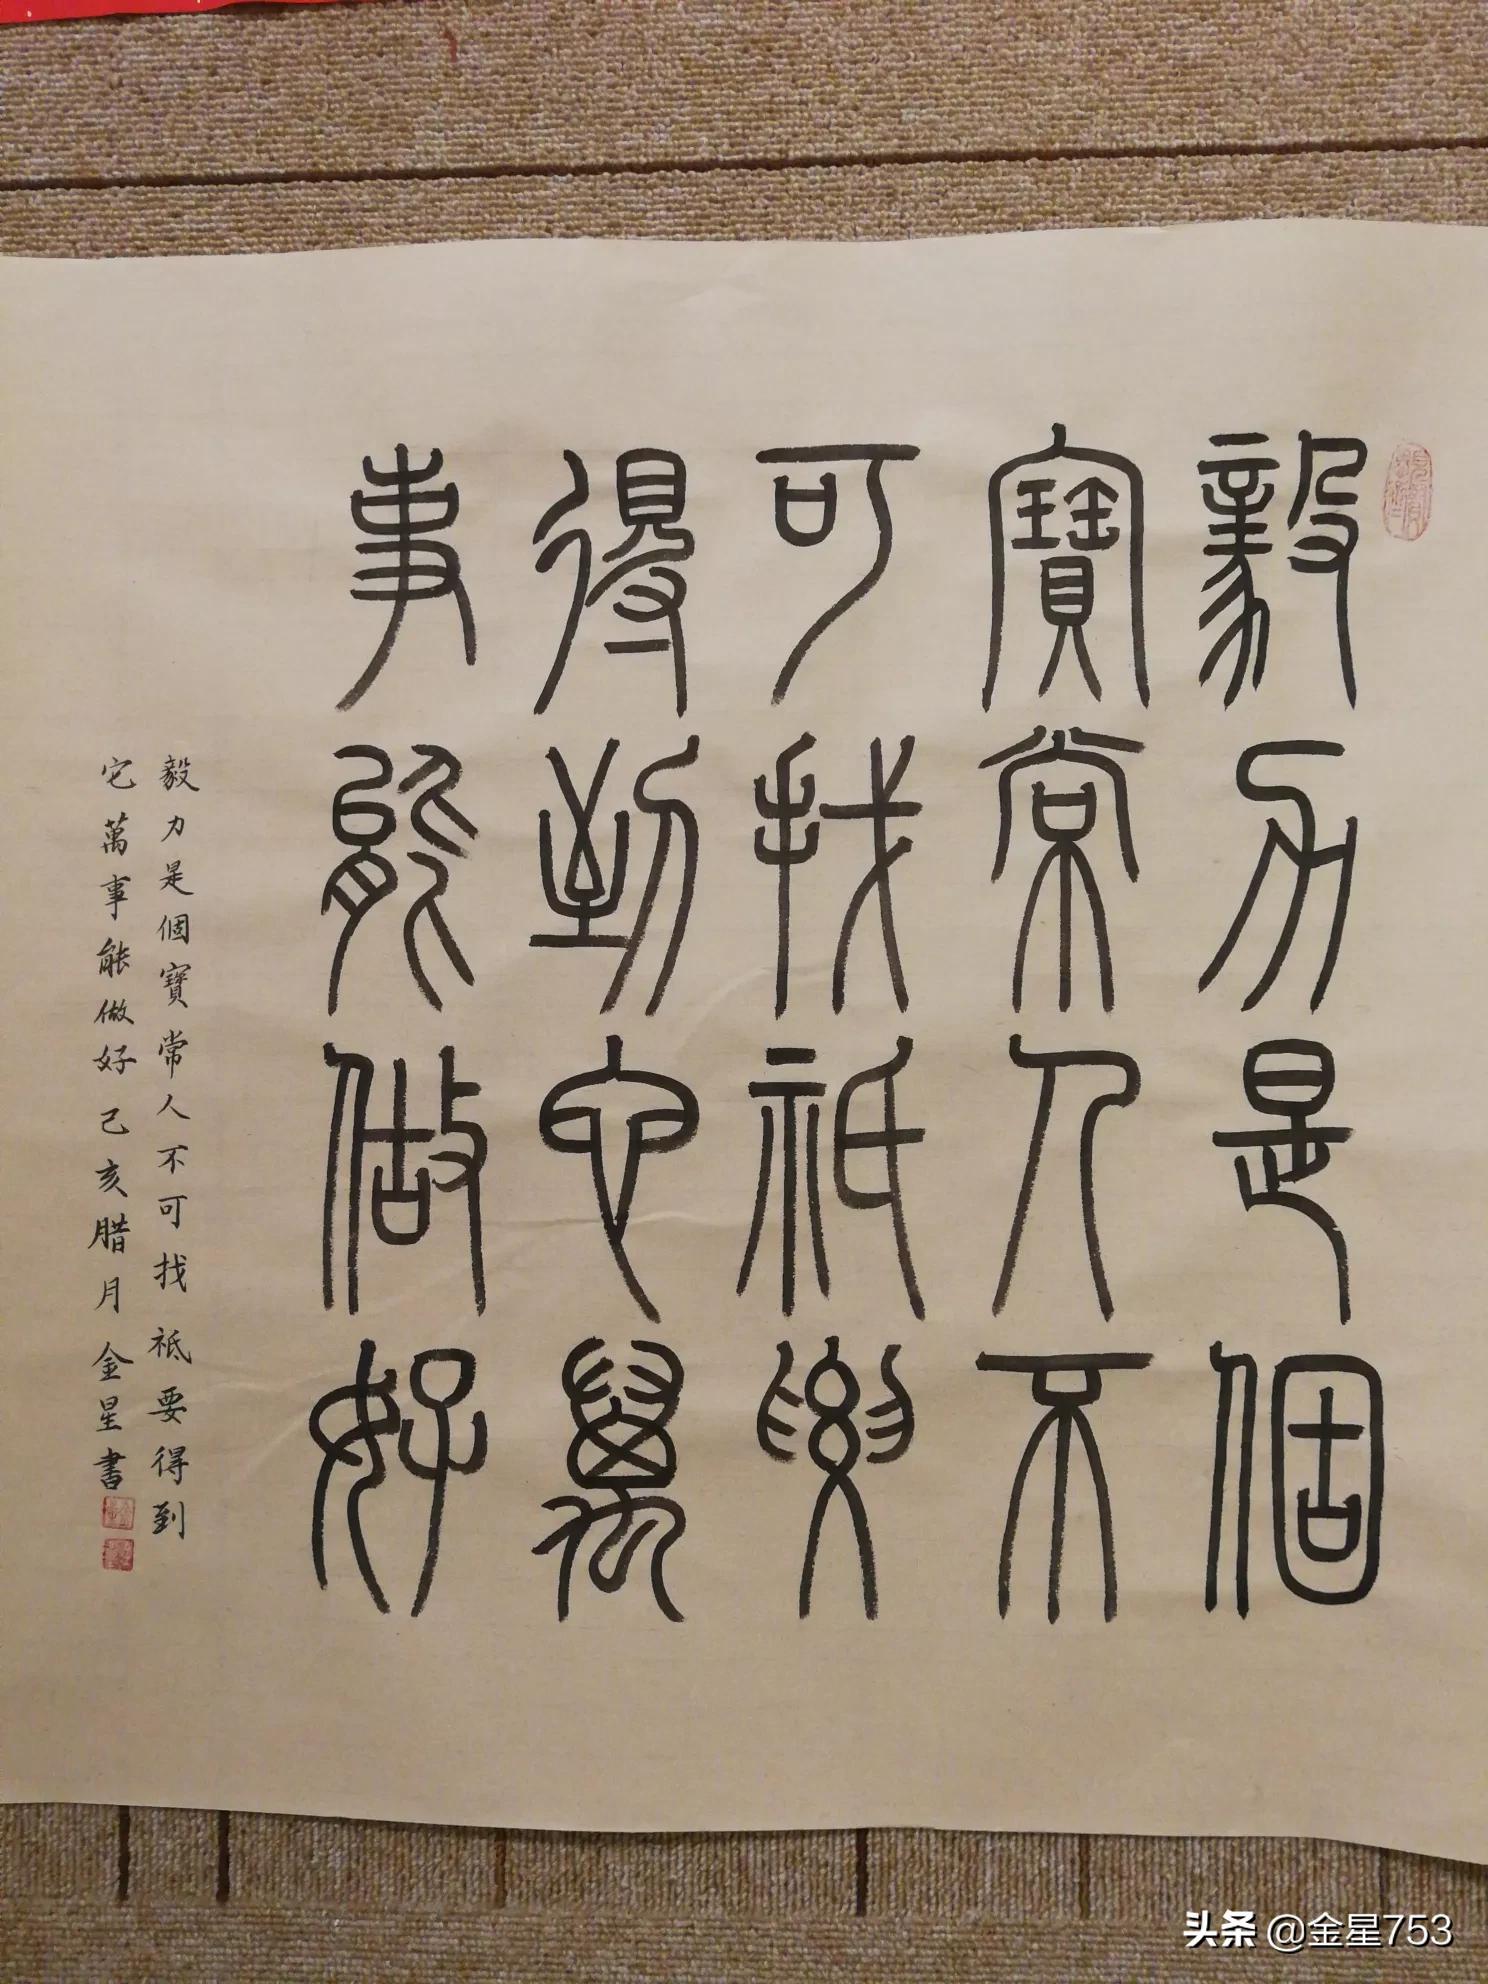 毅力是個
寶常人不
可找祗要
得到它萬
事能做好
毅力是個寶常人不可找祗要得到
它萬事能做好己亥腊月金星書
头条 @金星753